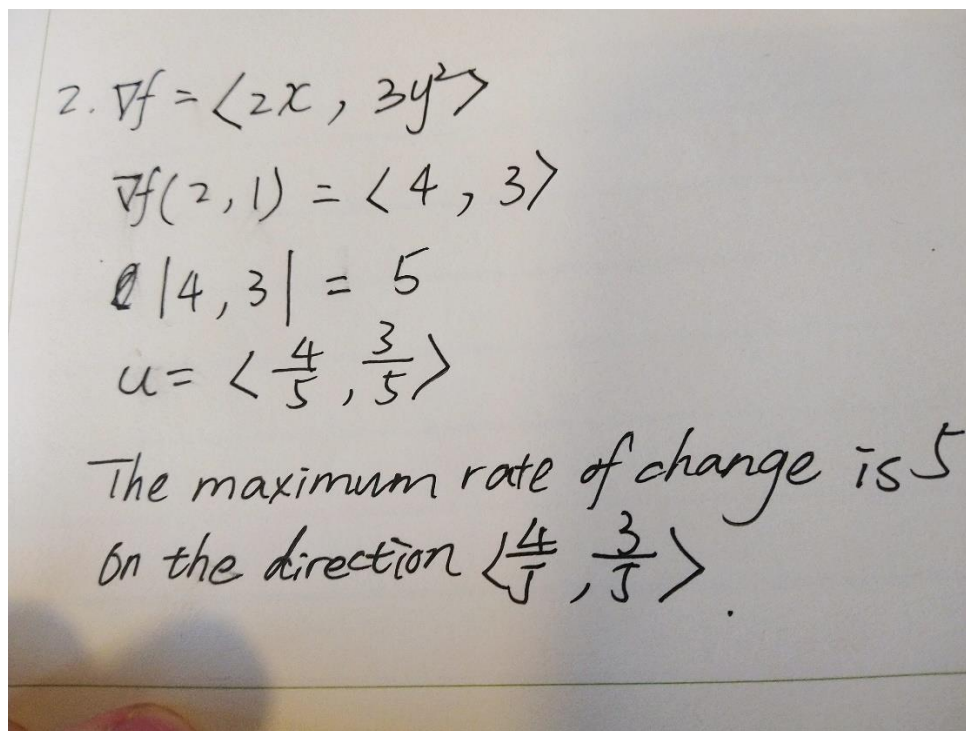 2. ∇f = ⟨2x, 3y²⟩
∇f(2,1) = ⟨4, 3⟩
|4,3| = 5
u = ⟨4/5, 3/5⟩
The maximum rate of change is 5
on the direction ⟨4/5, 3/5⟩.